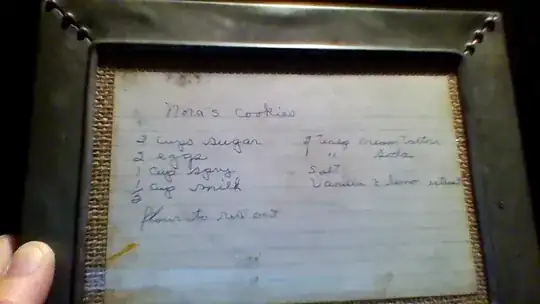 Nora's Cookies
2 cups sugar
2 eggs
1 cup spry
1/2 cup milk
flour to roll out
2 teasp cream tartar
1 " soda
Salt
Vanilla & lemon extract